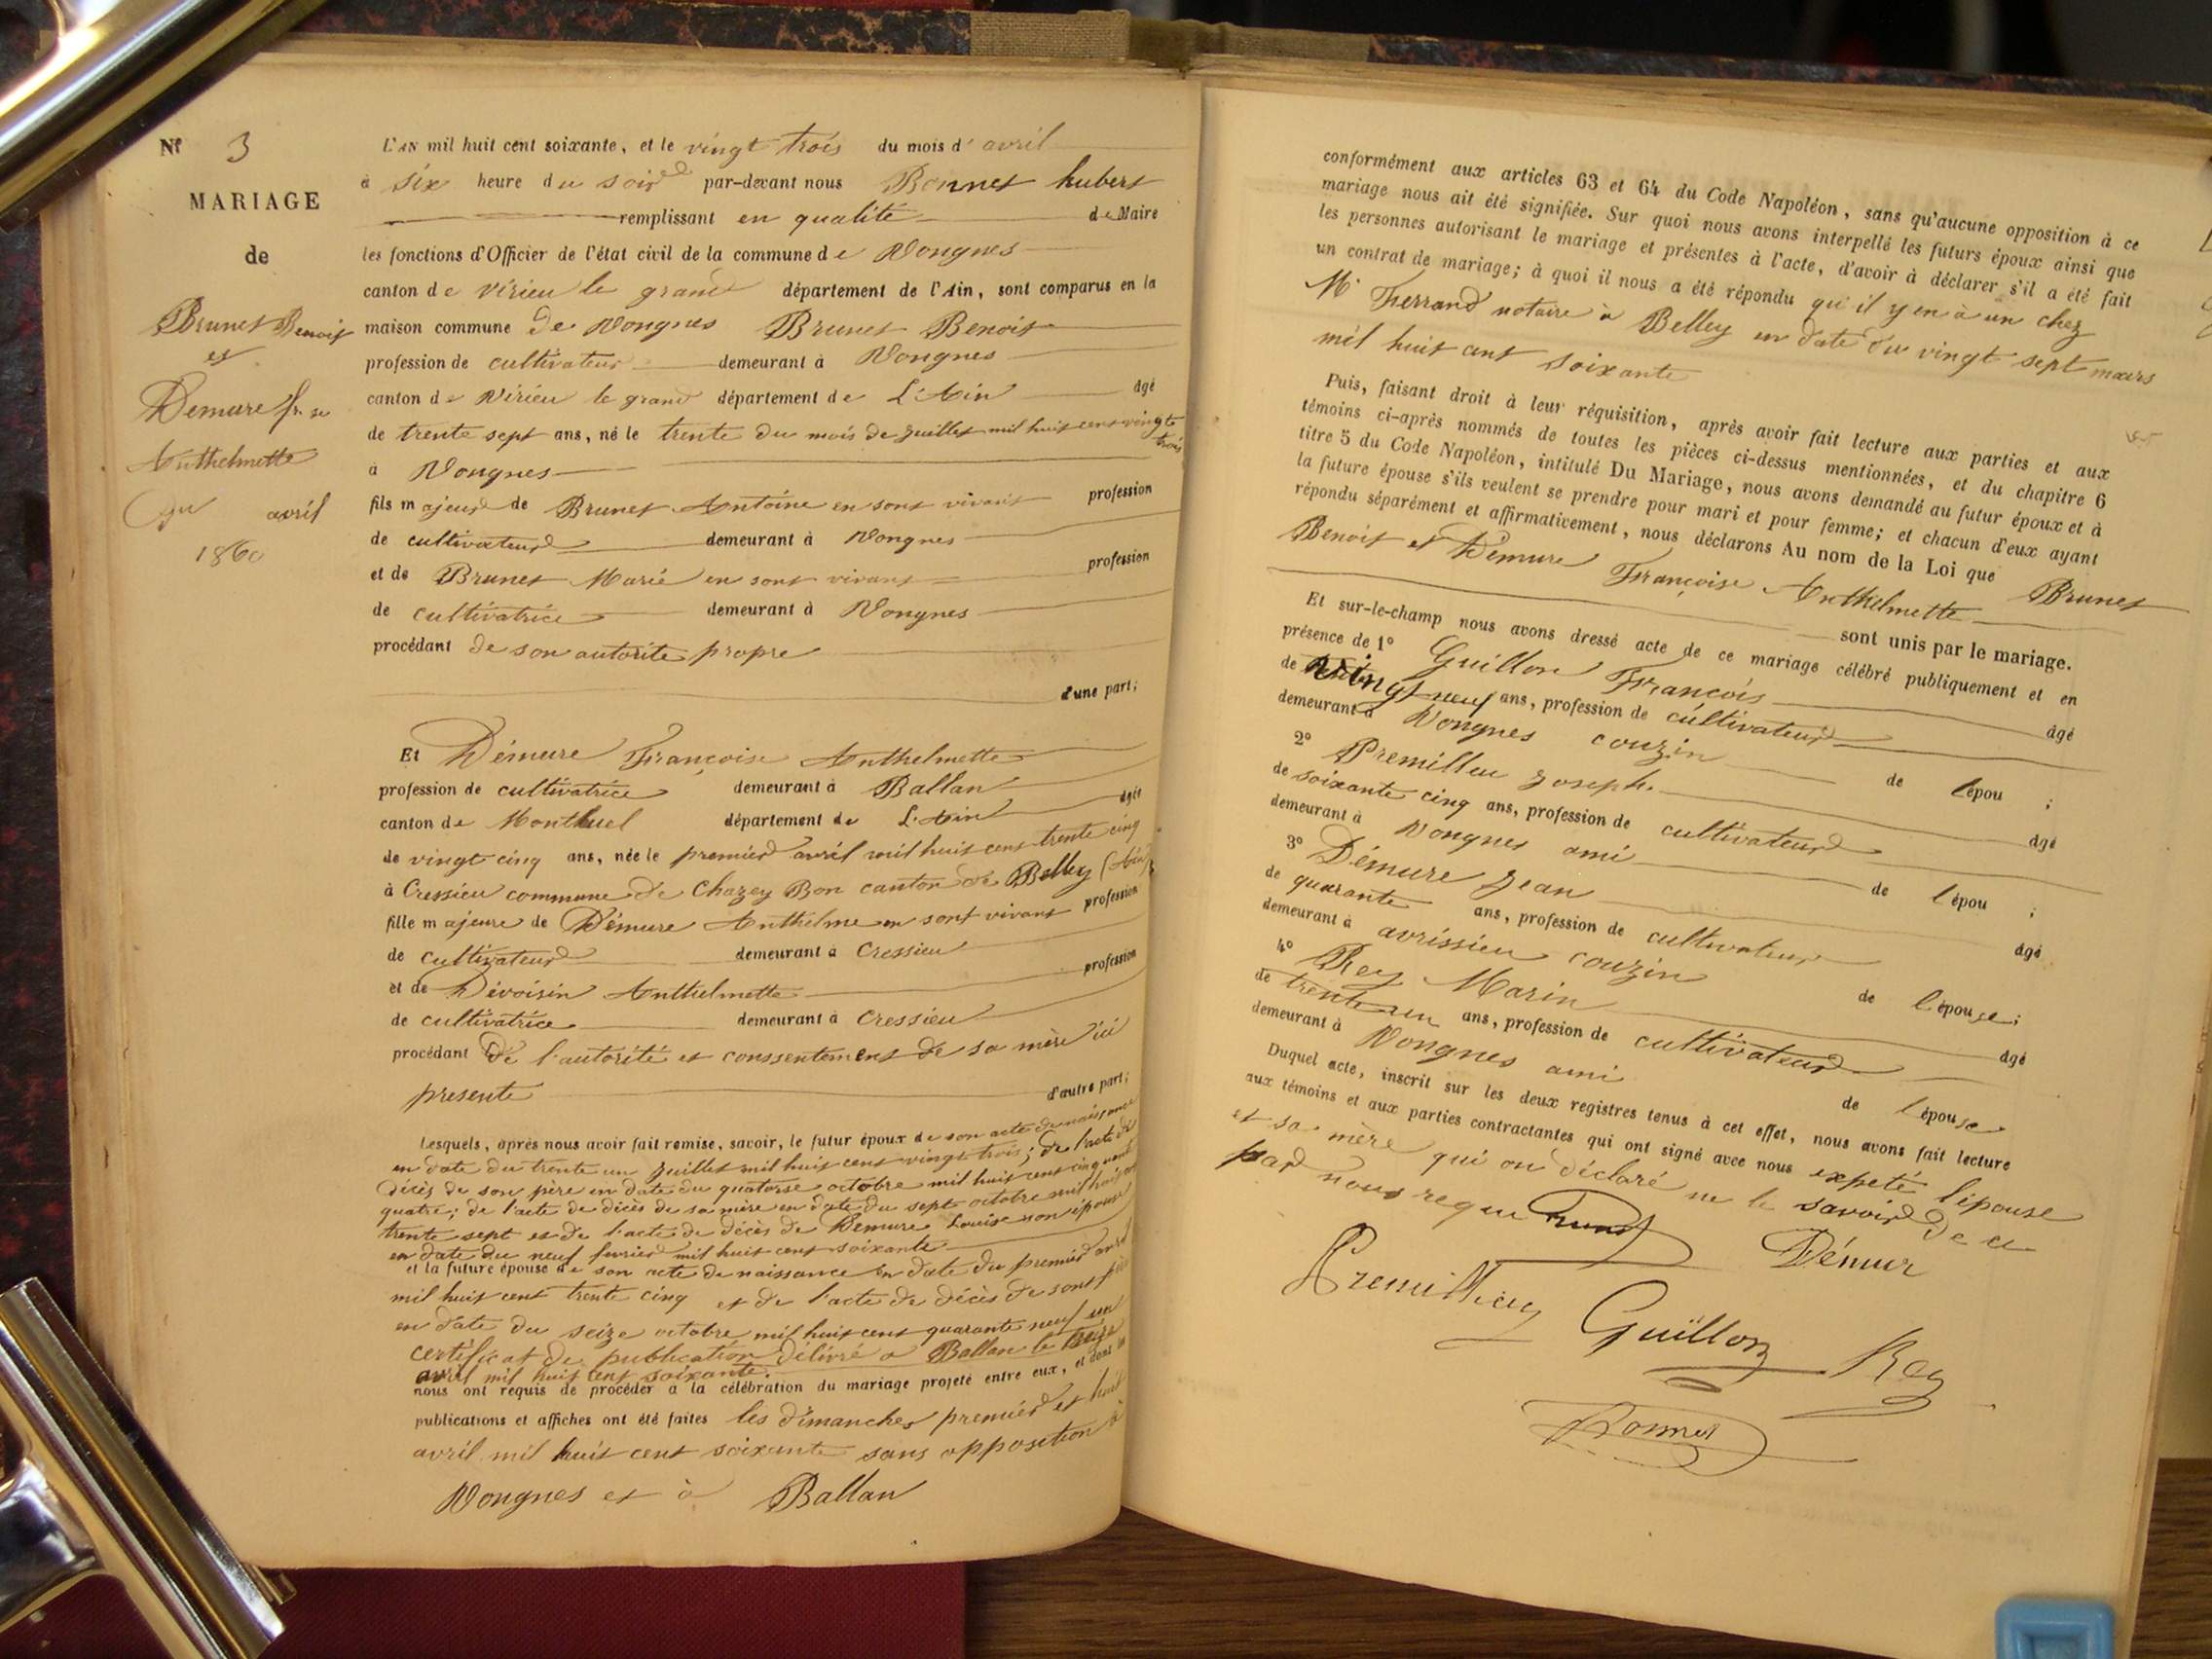 N° 3
MARIAGE
de
Brunet Benoit
et
Demure fse
Anthelmette
avril
1860
L'AN mil huit cent soixante, et le vingt trois du mois d'avril
à six heure du soir par-devant nous Bonnet hubert
remplissant en qualité de Maire
les fonctions d'Officier de l'état civil de la commune de Vongnes
canton de Virieu le grand département de l'Ain, sont comparus en la
maison commune de Vongnes Brunet Benoit
profession de cultivateur demeurant à Vongnes
canton de Virieu le grand département de L'Ain âgé
de trente sept ans, né le trente du mois de juillet mil huit cent vingt
trois
à Vongnes
fils majeur de Brunet Antoine en sont vivant profession
de cultivateur demeurant à Vongnes
et de Brunet Marie en sont vivant profession
de cultivatrice demeurant à Vongnes
procédant de son autorité propre
d'une part;
Et Démure Françoise Anthelmette
profession de cultivatrice demeurant à Ballan
canton de Montluel département de L'Ain âgée
de vingt cinq ans, née le premier avril mil huit cent trente cinq
à Cressieu commune de Chazey Bon canton de Belley (Ain)
fille majeure de Démure Anthelme en sont vivant profession
de cultivateur demeurant à Cressieu
et de Dévoisin Anthelmette profession
de cultivatrice demeurant à Cressieu
procédant de l'autorité et conssentement de sa mère ici
presente d'autre part;
Lesquels, après nous avoir fait remise, savoir, le futur époux de son acte de naissance
en date du trente un juillet mil huit cent vingt trois; de l'acte de
décès de son père en date du quatorse octobre mil huit cent cinquante
quatre; de l'acte de décès de sa mère en date du sept octobre mil huit cent
trente sept et de l'acte de décès de Demure Louise son épouse
en date du neuf fevrier mil huit cent soixante
et la future épouse de son acte de naissance en date du premier avril
mil huit cent trente cinq et de l'acte de décès de sont père
en date du seize octobre mil huit cent quarante neuf un
certificat de publication délivré à Ballan le treize
avril mil huit cent soixante.
nous ont requis de procéder à la célébration du mariage projeté entre eux, et dont les
publications et affiches ont été faites les dimanches premier et huit
avril mil huit cent soixante sans opposition à
Vongnes et à Ballan
conformément aux articles 63 et 64 du Code Napoléon, sans qu'aucune opposition à ce
mariage nous ait été signifiée. Sur quoi nous avons interpellé les futurs époux ainsi que
les personnes autorisant le mariage et présentes à l'acte, d'avoir à déclarer s'il a été fait
un contrat de mariage; à quoi il nous a été répondu qu'il y en à un chez
Mr Ferrand notaire à Belley en date du vingt sept mars
mil huit cent soixante
Puis, faisant droit à leur réquisition, après avoir fait lecture aux parties et aux
témoins ci-après nommés de toutes les pièces ci-dessus mentionnées, et du chapitre 6
titre 5 du Code Napoléon, intitulé Du Mariage, nous avons demandé au futur époux et à
la future épouse s'ils veulent se prendre pour mari et pour femme; et chacun d'eux ayant
répondu séparément et affirmativement, nous déclarons Au nom de la Loi que Brunet
Benoit et Démure Françoise Anthelmette
sont unis par le mariage.
Et sur-le-champ nous avons dressé acte de ce mariage célébré publiquement et en
présence de 1° Guillon François âgé
de vingt neuf ans, profession de cultivateur
demeurant à Vongnes couzin de l'épou ;
2° Premillieu Joseph. âgé
de soixante cinq ans, profession de cultivateur
demeurant à Vongnes ami de l'épou ;
3° Démure Jean âgé
de quarante ans, profession de cultivateur
demeurant à avrissieu couzin de l'épouse;
4° Rey Marin âgé
de trente un ans, profession de cultivateur
demeurant à Vongnes ami de l'épouse
Duquel acte, inscrit sur les deux registres tenus à cet effet, nous avons fait lecture
aux témoins et aux parties contractantes qui ont signé avec nous expeté l'épouse
et sa mère qui on déclaré ne le savoir de ce
par nous requi Brunet Démur
Premillieu Guillon Rey
Bonnet